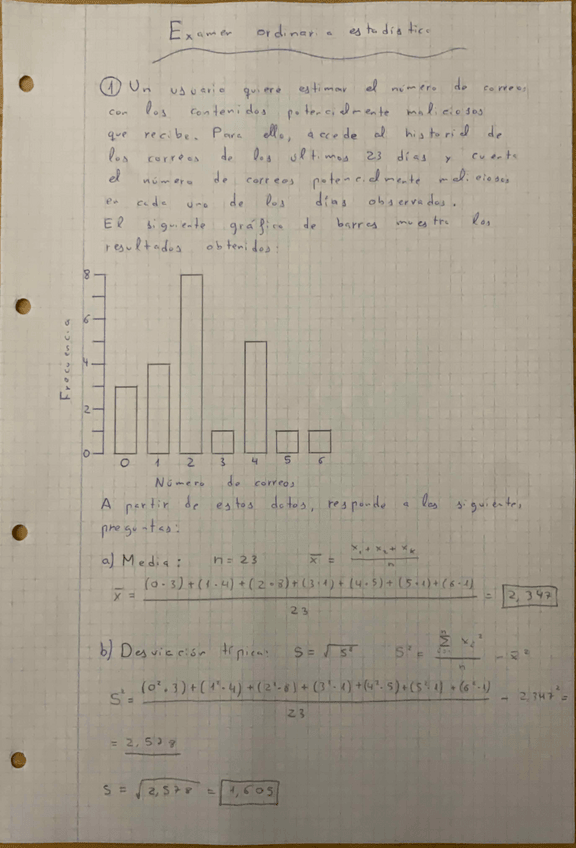 Examen ordinario estadística
① Un usuario quiere estimar el número de correos
con los contenidos potencialmente maliciosos
que recibe. Para ello, accede al historial de
los correos de los últimos 23 días y cuenta
el número de correos potencialmente maliciosos
en cada uno de los días observados.
El siguiente gráfico de barras muestra los
resultados obtenidos:
8
6
4
2
0
Frecuencia
0 1 2 3 4 5 6
Número de correos
A partir de estos datos, responde a las siguientes
preguntas:
a) Media: n = 23 x̄ = (x₁ + x₂ + xₖ) / n
x̄ = ((0·3)+(1·4)+(2·8)+(3·1)+(4·5)+(5·1)+(6·1)) / 23 = 2,347
b) Desviación típica: S = √S² S² = (Σ xᵢ²) / n - x̄²
S² = ((0²·3)+(1²·4)+(2²·8)+(3²·1)+(4²·5)+(5²·1)+(6²·1)) / 23 - 2,347² =
= 2,578
S = √2,578 = 1,605